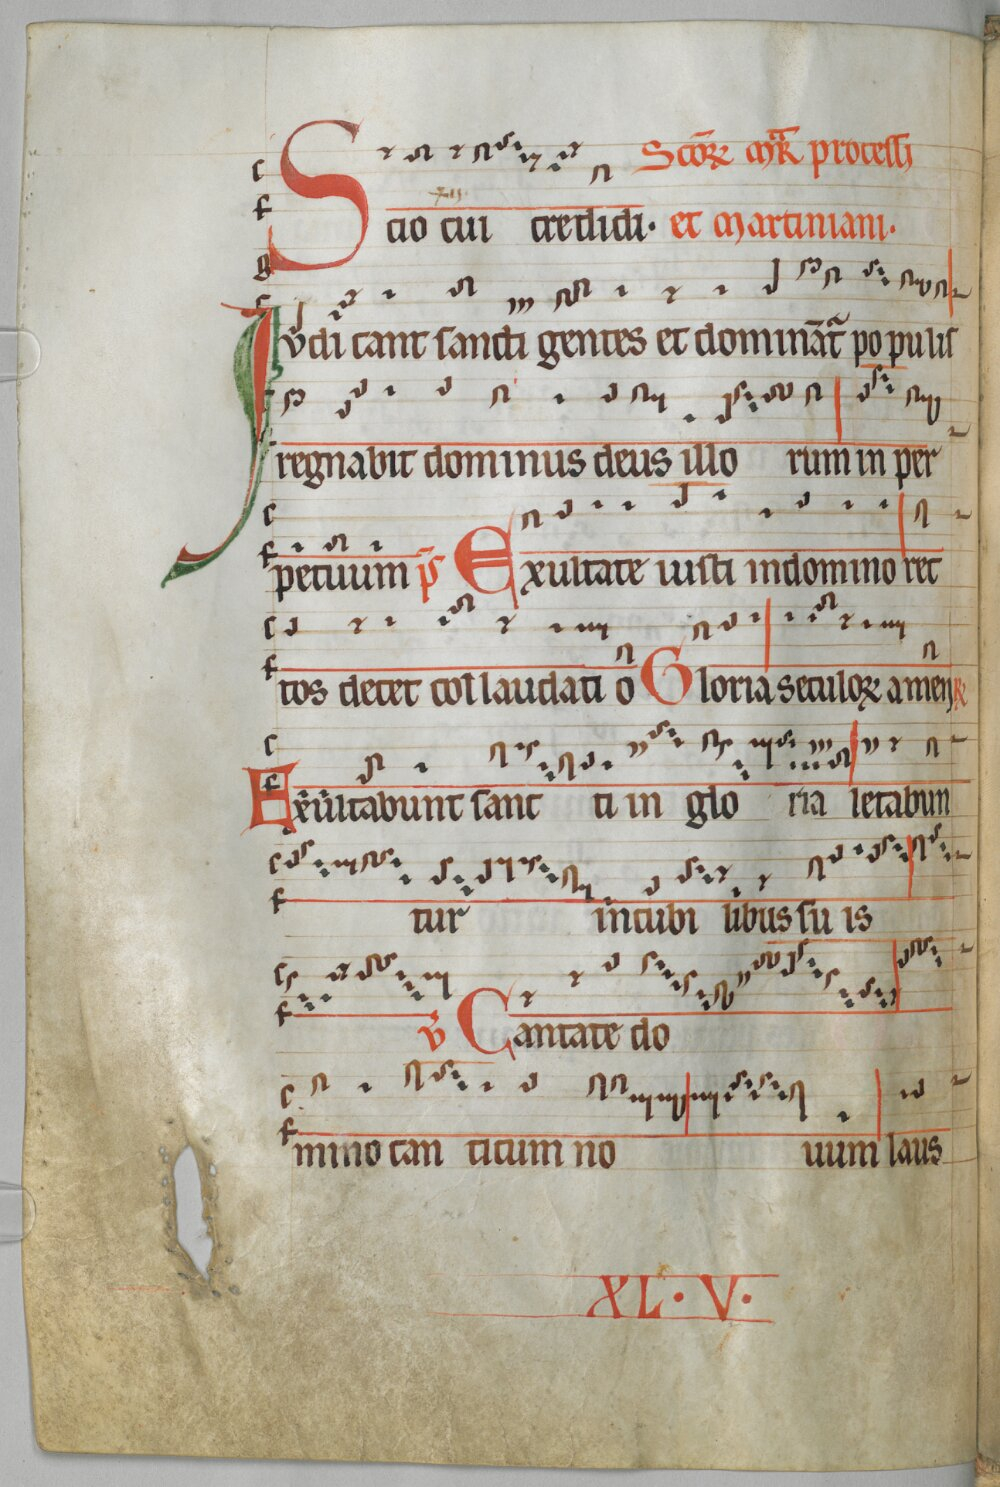 Scio cui credidi· Scoꝝ mr̄ꝝ processi
et martiniani·
Ivdicant sancti gentes et domināt̄ populis
regnabit dominus deus illorum in per
petuum p̄s Exultate iusti in domino rec
tos decet collaudatio Gloria seculoꝝ amen
Exultabunt sancti in gloria letabun
tur in cubilibus suis
v̄ Cantate do
mino canticum nouum laus
XL·V·